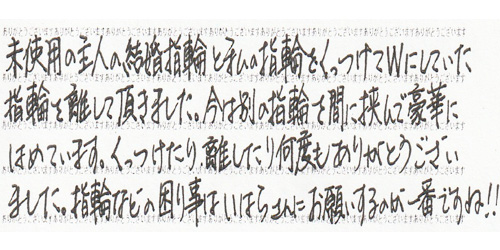 未使用の主人の結婚指輪と私の指輪をくっつけてWにしていた
指輪を離して頂きました。今は別の指輪を間に挟んで豪華に
はめています。くっつけたり、離したり何度もありがとうござい
ました。指輪などの困り事はいはらさんにお願いするのが一番ですね!!